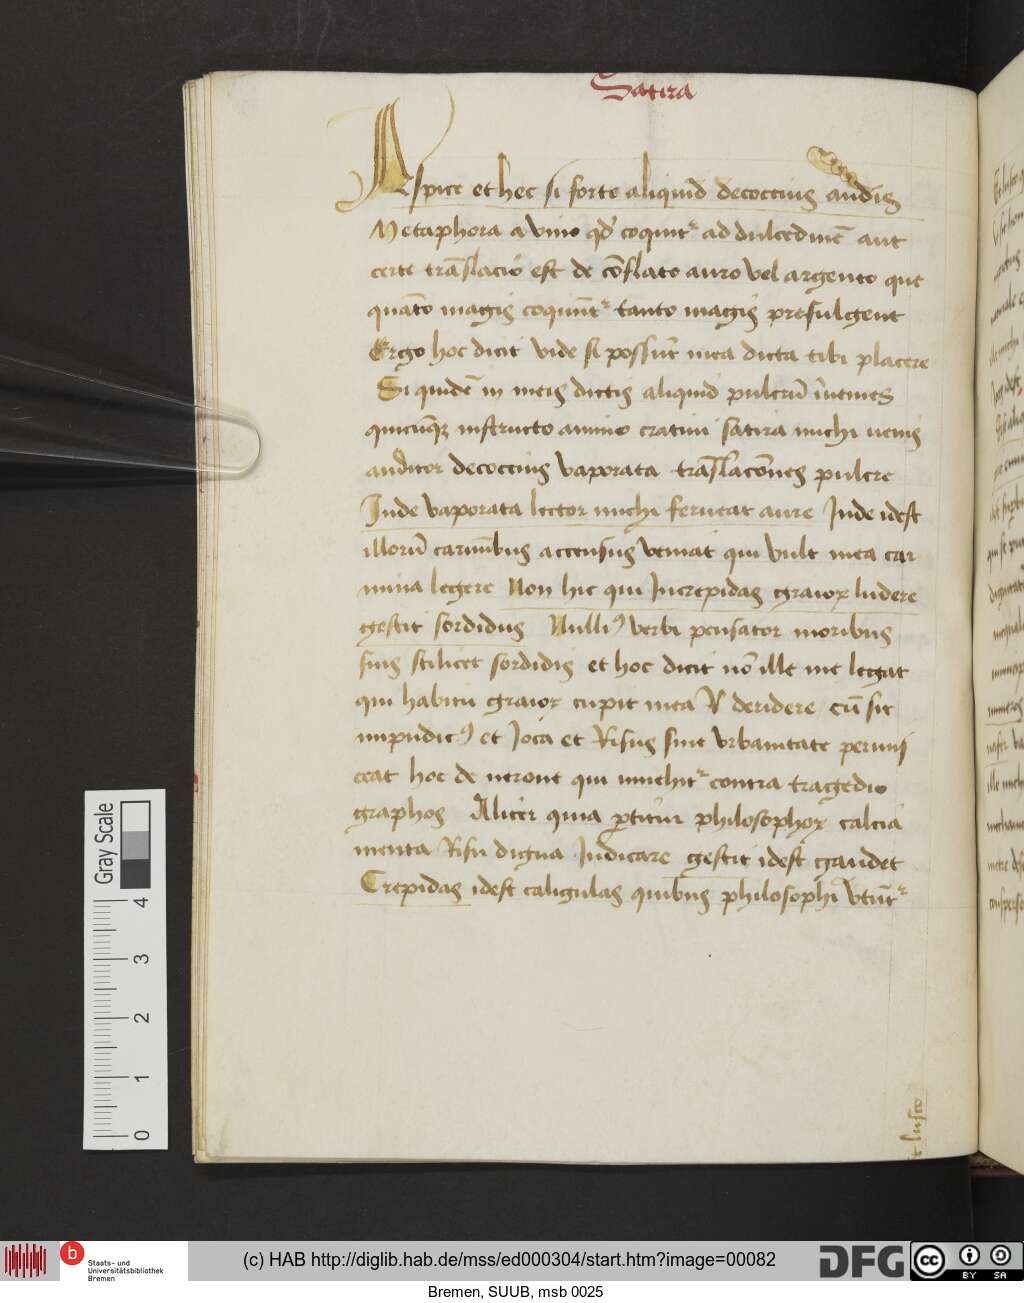 Satira
Aspice et hec si forte aliquid decoccius audis
Metaphora a vino qd' coquit᷑ ad dulcedinē aut
certe trāslacio est de cōflato auro vel argento que
quāto magis coquūt᷑ tanto magis prefulgent
Ergo hoc dicit vide si possūt mea dicta tibi placere
Si quidē in meis dictis aliquid pulcrū īuenies
quicūqꝫ instructo animo cratini satira michi uenis
auditor decoccius vaporata traslacōnes pulcre
Inde vaporata lector michi ferueat aure Inde idest
illorū carmībus accensus veniat qui vult mea car
mina legere Non hic qui Increpidas graioꝝ ludere
gestit sordidus Nulliꝰ verbi pensator moribus
suis scilicet sordidis et hoc dicit nō ille me legat
qui habitū graioꝝ cupit mea deridere cū sit
impudicꝰ et Joca et Risus sine vrbanitate
ceat hoc de nerone qui inuehit᷑ contra tragedio
graphos Aliter quia philosophoꝝ calcia
menta Risu digna Judicare gestit idest gaudet
Crepidas idest caligulas quibus philosophi vtūt᷑
t lusco
Gray Scale
4
3
2
1
0
b
Staats- und
Universitätsbibliothek
Bremen
(c) HAB http://diglib.hab.de/mss/ed000304/start.htm?image=00082
DFG
cc
BY SA
Bremen, SUUB, msb 0025